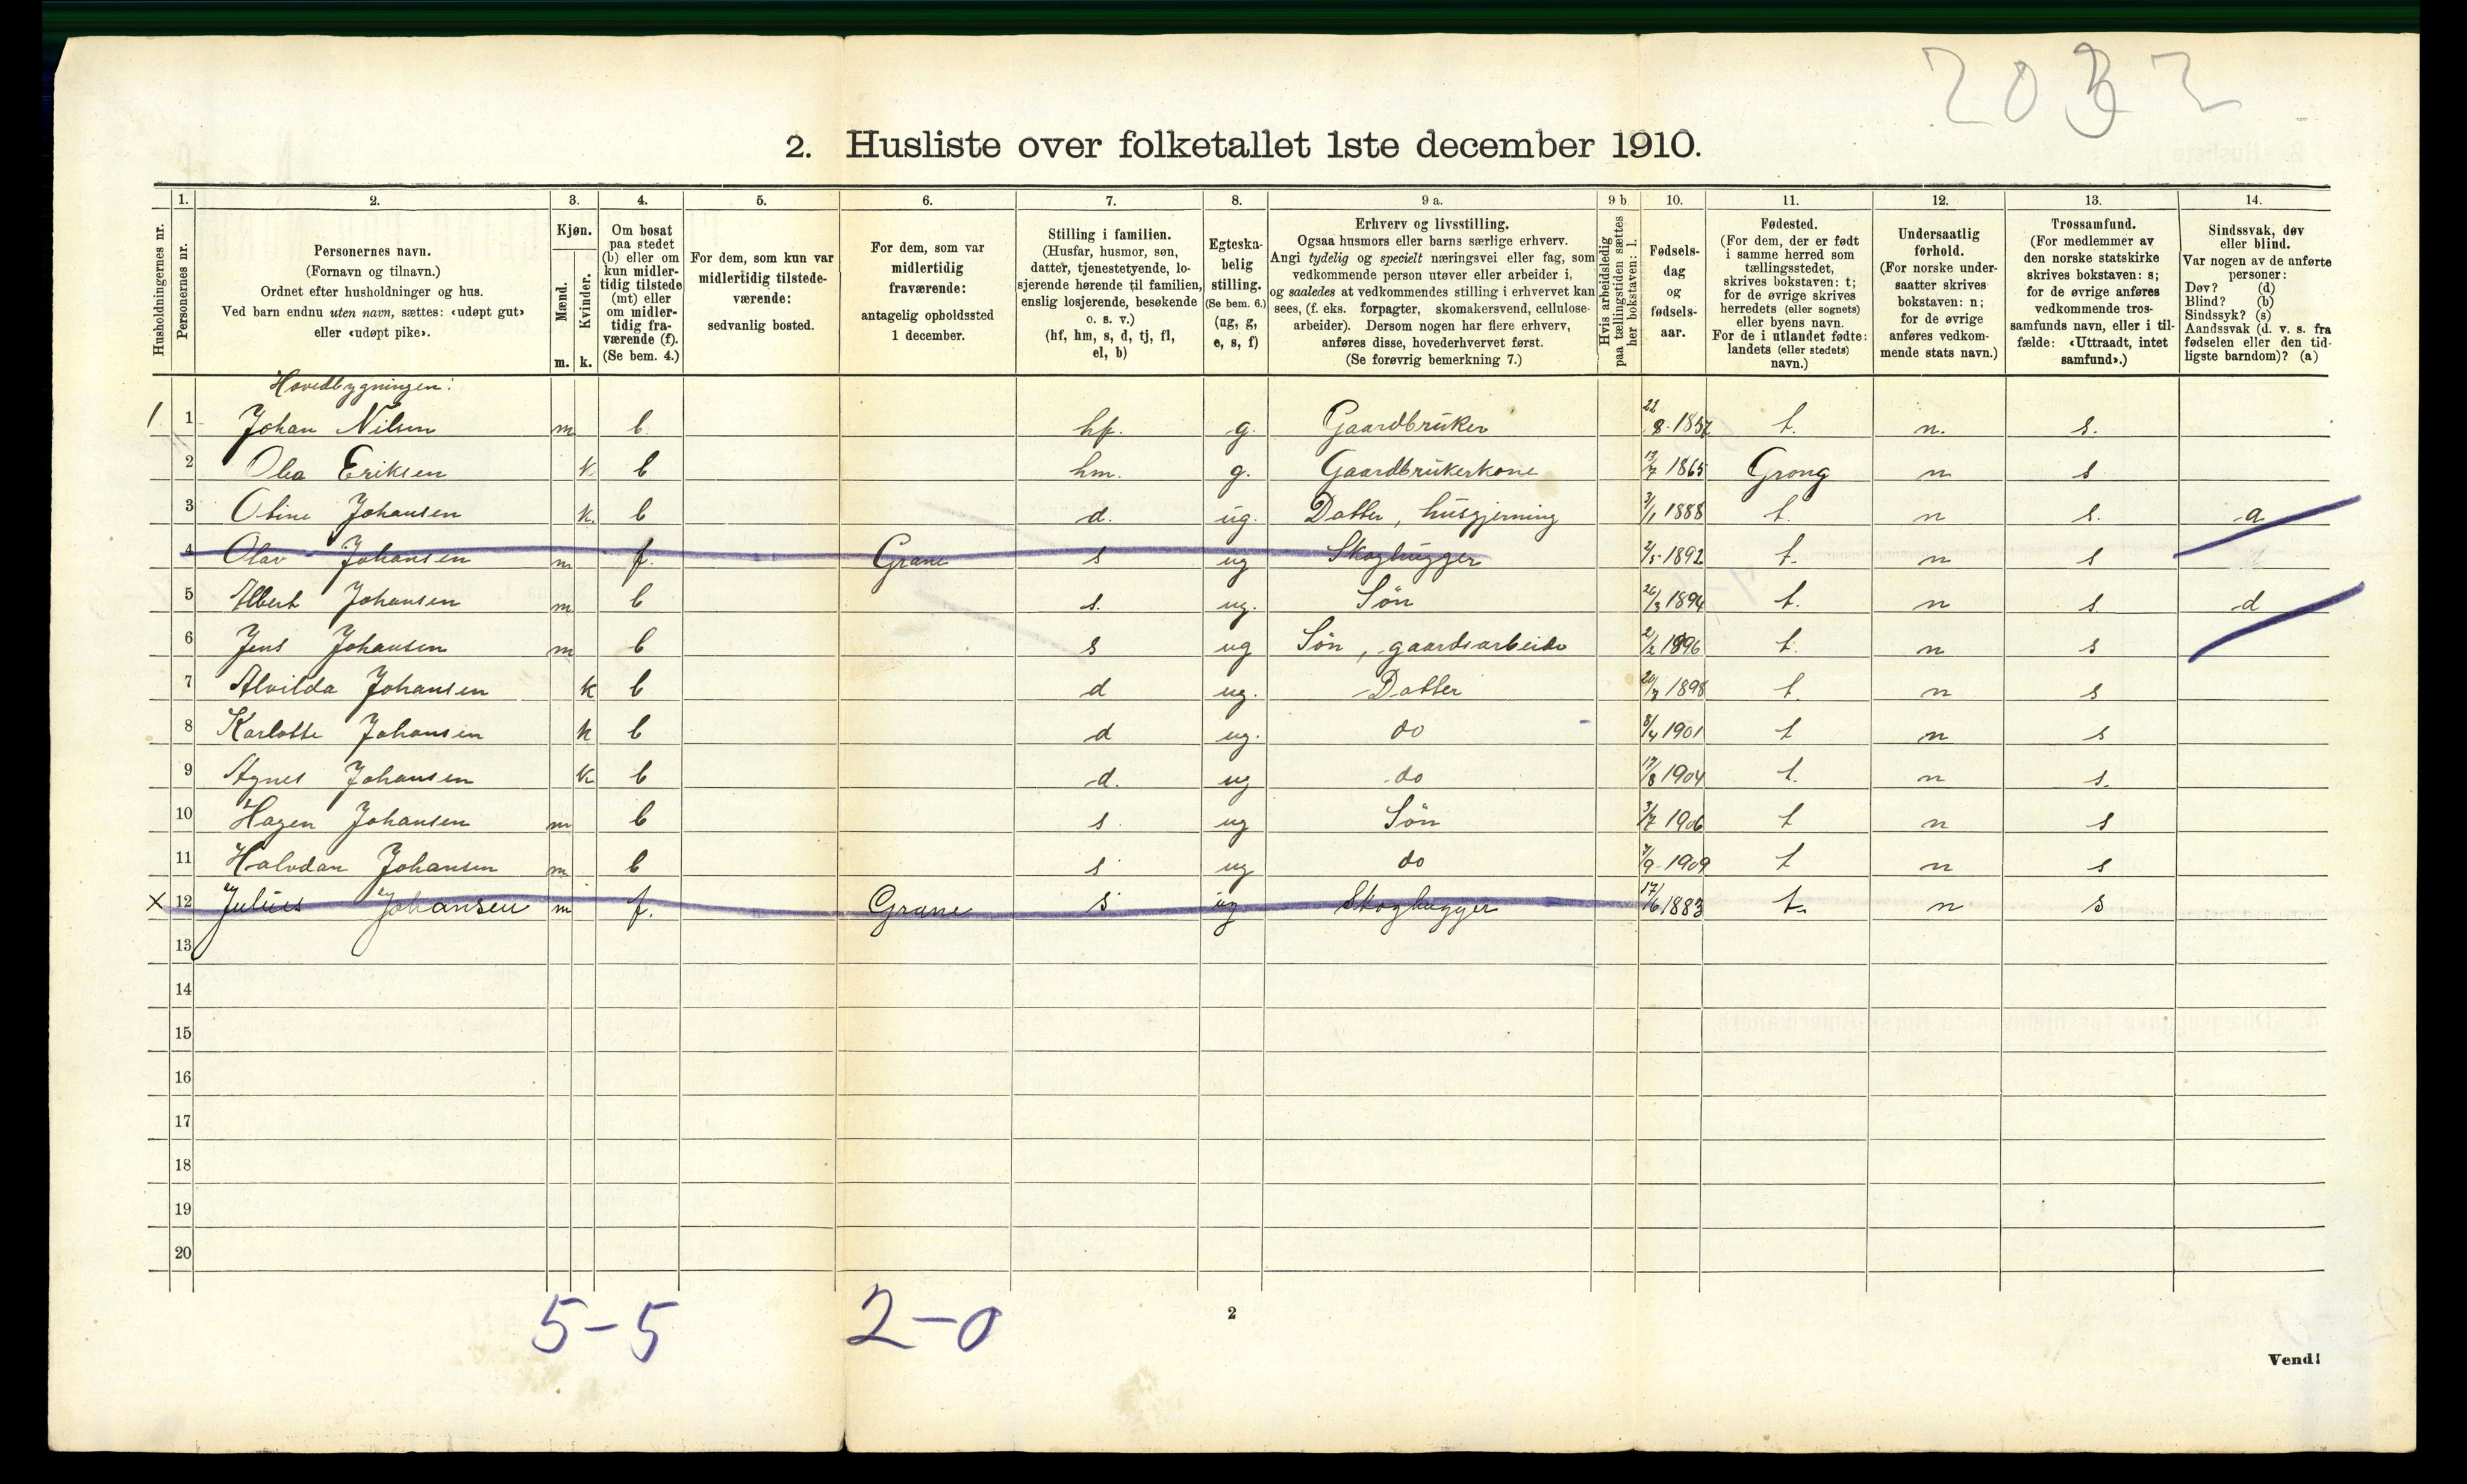 2032
2. Husliste over folketallet 1ste december 1910.
Husholdningernes nr.
1. Personernes nr.
2. Personernes navn. (Fornavn og tilnavn.) Ordnet efter husholdninger og hus. Ved barn endnu uten navn, sættes: «udøpt gut» eller «udøpt pike».
3. Kjøn. Mænd. m. Kvinder. k.
4. Om bosat paa stedet (b) eller om kun midlertidig tilstede (mt) eller om midlertidig fraværende (f). (Se bem. 4.)
5. For dem, som kun var midlertidig tilstedeværende: sedvanlig bosted.
6. For dem, som var midlertidig fraværende: antagelig opholdssted 1 december.
7. Stilling i familien. (Husfar, husmor, søn, datter, tjenestetyende, losjerende hørende til familien, enslig losjerende, besøkende o. s. v.) (hf, hm, s, d, tj, fl, el, b)
8. Egteskabelig stilling. (Se bem. 6.) (ug, g, e, s, f)
9 a. Erhverv og livsstilling. Ogsaa husmors eller barns særlige erhverv. Angi tydelig og specielt næringsvei eller fag, som vedkommende person utøver eller arbeider i, og saaledes at vedkommendes stilling i erhvervet kan sees, (f. eks. forpagter, skomakersvend, cellulosearbeider). Dersom nogen har flere erhverv, anføres disse, hovederhvervet først. (Se forøvrig bemerkning 7.)
9 b Hvis arbeidsledig paa tællingstiden sættes her bokstaven: l.
10. Fødselsdag og fødselsaar.
11. Fødested. (For dem, der er født i samme herred som tællingsstedet, skrives bokstaven: t; for de øvrige skrives herredets (eller sognets) eller byens navn. For de i utlandet fødte: landets (eller stedets) navn.)
12. Undersaatlig forhold. (For norske undersaatter skrives bokstaven: n; for de øvrige anføres vedkommende stats navn.)
13. Trossamfund. (For medlemmer av den norske statskirke skrives bokstaven: s; for de øvrige anføres vedkommende trossamfunds navn, eller i tilfælde: «Uttraadt, intet samfund».)
14. Sindssvak, døv eller blind. Var nogen av de anførte personer: Døv? (d) Blind? (b) Sindssyk? (s) Aandssvak (d. v. s. fra fødselen eller den tidligste barndom)? (a)
Hovedbygningen:
1 1 Johan Nilsen m b hf. g. Gaardbruker 22/8-1857 t. n. s.
2 Olea Eriksen k. b hm. g. Gaardbrukerkone 13/7 1865 Grong n s
3 Oline Johansen k. b d. ug. Datter, husgjerning 3/1 1888 t. n s. a
4 Olav Johansen m f. Grane s ug Skoghugger 2/5-1892 t. n s
5 Albert Johansen m b s. ug. Søn 26/3 1894 t. n s d
6 Jens Johansen m b s ug Søn, gaardsarbeide 2/2 1896 t. n s
7 Alvilda Johansen k b d ug. Datter 20/7 1898 t. n s
8 Karlotte Johansen k b d ug. do 8/4 1901 t n s
9 Agnes Johansen k b d. ug do 17/8 1904 t. n s.
10 Hagen Johansen m b s. ug Søn 3/7 1906 t n s
11 Halvdan Johansen m b s ug do 7/9-1909 t n s
X 12 Julius Johansen m f. Grane s ug Skoghugger 17/6 1883 t. n s
13
14
15
16
17
18
19
20
5-5 2-0
2
Vend!